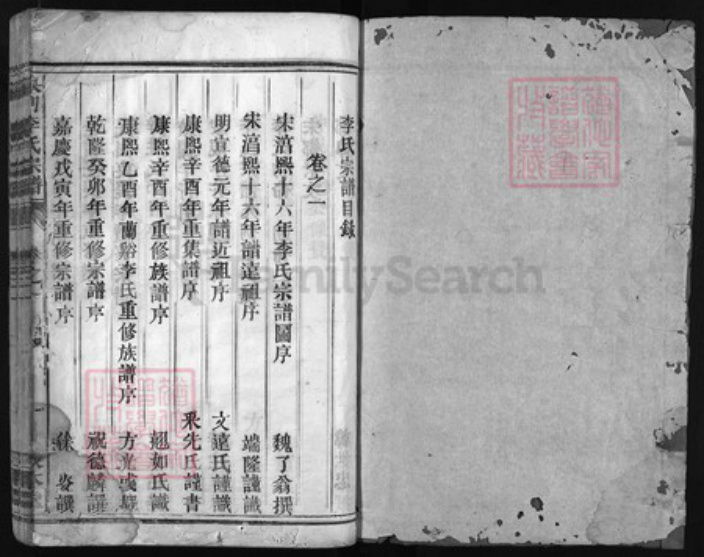 李氏宗譜目錄
卷之一
宋淳熙十六年李氏宗譜圖序 魏了翁撰
宋淳熙十六年譜遠祖序 端隆謹識
明宣德元年譜近祖序 文達氏謹識
康熙辛酉年重集譜序 釆先氏謹書
康熙辛酉年重修族譜序 翹如氏識
康熙乙酉年蘭谿李氏重修族譜序 方光
乾隆癸卯年重修宗譜序 祝德麟譔
嘉慶戊寅年重修宗譜序 徐 譔
李氏宗譜
FamilySearch